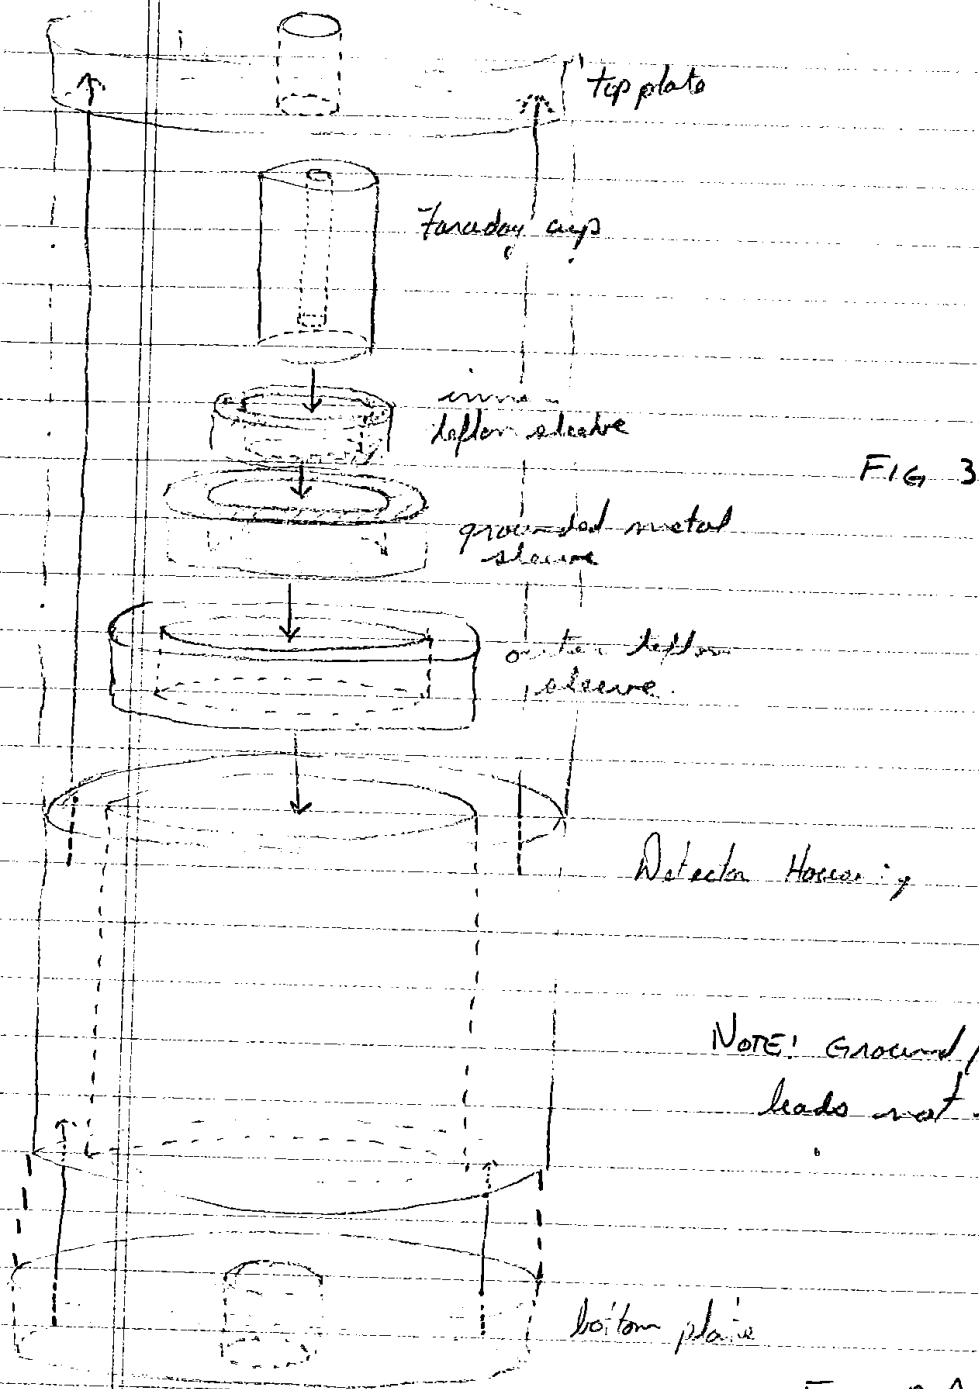 top plate
Faraday cup
inner
teflon sleeve
FIG 3
grounded metal
sleeve
outer teflon
sleeve.
Detector Housing
NOTE! Ground/
leads not
bottom plate